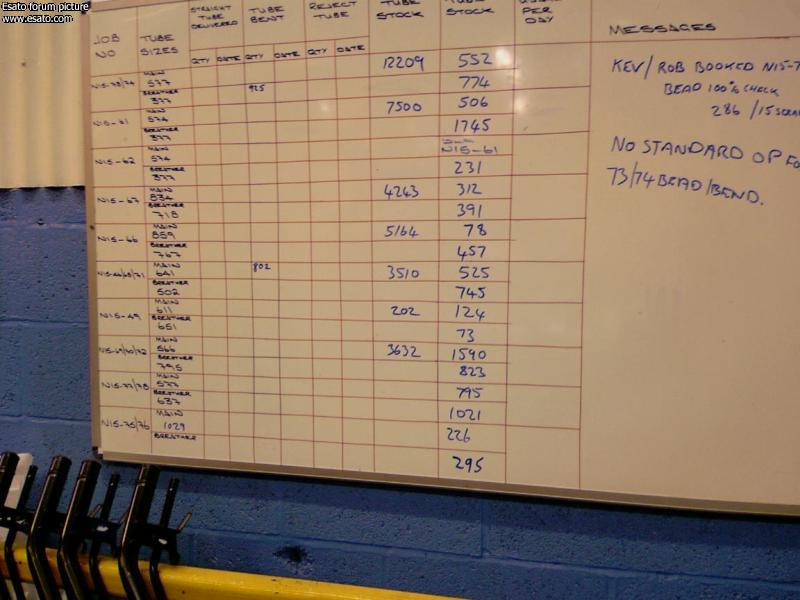 Esato forum picture
www.esato.com
JOB NO
TUBE SIZES
STRAIGHT TUBE DELIVERED
TUBE BENT
REJECT TUBE
TUBE STOCK
TUBE STOCK
PER DAY
MESSAGES
QTY DATE QTY DATE QTY DATE
N15-73/74 MAIN 577 12209 552
BREATHER 377 925 774
N15-61 MAIN 574 7500 506
BREATHER 377 1745
N15-62 MAIN 574 N15-61
BREATHER 377 231
N15-67 MAIN 834 4243 312
BREATHER 718 391
N15-66 MAIN 859 5164 78
BREATHER 767 457
MAIN 641 802 3510 525
BREATHER 502 745
N15-49 MAIN 611 202 124
651 73
N15-69/70/72 MAIN 566 3632 1590
BREATHER 795 823
N15-77/78 MAIN 577 795
BREATHER 637 1021
N15-75/76 MAIN 1029 226
BREATHER 295
KEV/ROB BOOKED N15-7
BEAD 100% CHECK
286 / 15
NO STANDARD OP FO
73/74 BEAD/BEND.